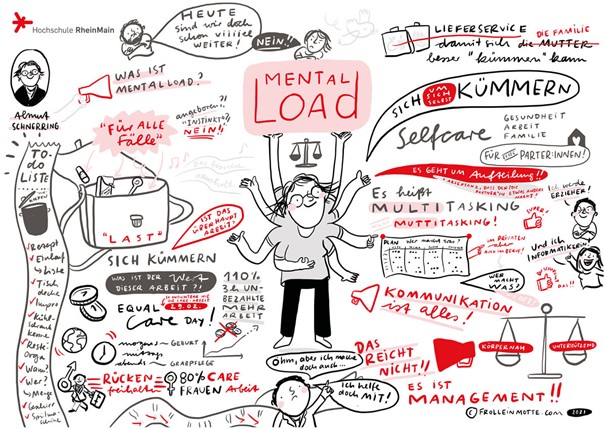 Hochschule RheinMain
HEUTE
sind wir doch
schon viiiiel
WEITER!
NEIN!!
LIEFERSERVICE
damit sich die MUTTER
DIE FAMILIE
besser "kümmern" kann
WAS IST
MENTALLOAD?
MENTAL
LOAD
SICH UM SICH SELBST KÜMMERN
Almut
SCHNERRING
"Für ALLE
Fälle"
angeboren?!
"INSTINKT"?!
NEIN!!
Selfcare
GESUNDHEIT
ARBEIT
FAMILIE
FÜR
PARTER:INNEN!
TO-
do
LISTE
"LAST"
IST DAS
ÜBERHAUPT
ARBEIT?
ES GEHT UM Aufteilung!!
Es heißt
MULTITASKING
MUTTITASKING!
Ich werde
ERZIEHER!
SUPER!
Und ich
INFORMATIKERIN
PLAN
WER MACHT
WAS?
Rezept
Einkauf
Liste
Tisch
decke
Wann?
Wer?
Menge
SICH KÜMMERN
WAS IST DER Wert
DIESER ARBEIT?!
EQUAL
Care DAY!
29.02.
110%
UN-
BEZAHLTE
MEHR
ARBEIT
morgens
mittags
abends
GEBURT
GRABPFLEGE
RÜCKEN
freihalten
80% CARE
FRAUEN Arbeit
KOMMUNIKATION
ist alles!
Ohm, aber ich mache
doch auch...
DAS
REICHT
NICHT!!
Ich helfe
doch MIT!
KÖRPERNAH
UNTERSTÜTZEND
ES IST
MANAGEMENT!!
© FROLLEINMOTTE.COM 2021